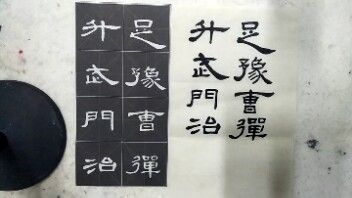 足豫曹彈
升武門治
足豫曹彈
升武門治